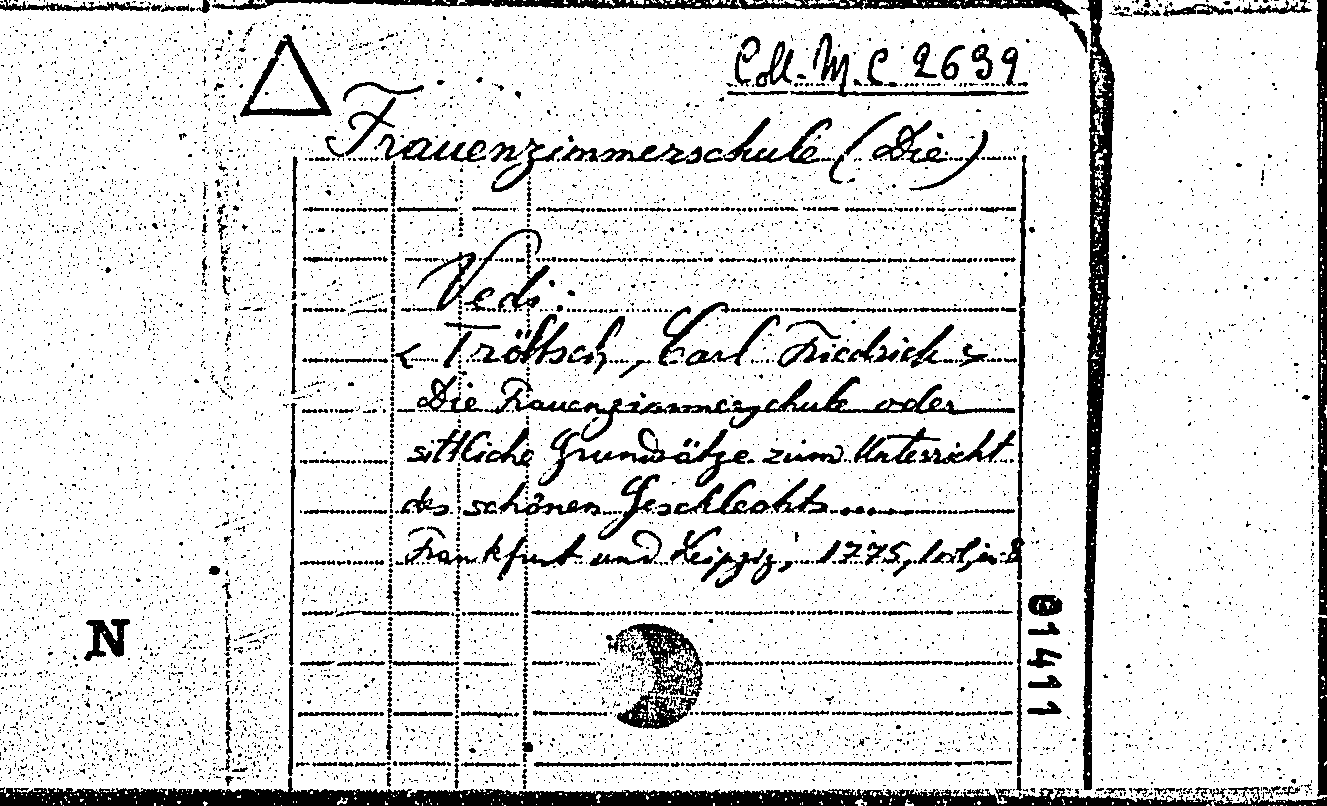 Coll. M. C. 2639
Frauenzimmerschule (Die)
Vedi:
< Tröltsch, Carl Friedrich >
Die Frauenzimmerschule oder
sittliche Grundsätze zum Unterricht
des schönen Geschlechts.....
Frankfurt und Leipzig, 1775, 1 vol, in 8
N
01411